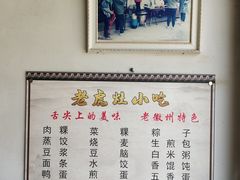 老虎灶小吃
舌尖上的美味 老徽州特色
肉粿 菜粿 粽子
蒸饺 烧麦 生煎包
豆浆 豆腐脑 白米粥
面条 水饺 香馄饨
鸭蛋 煎蛋 五香蛋